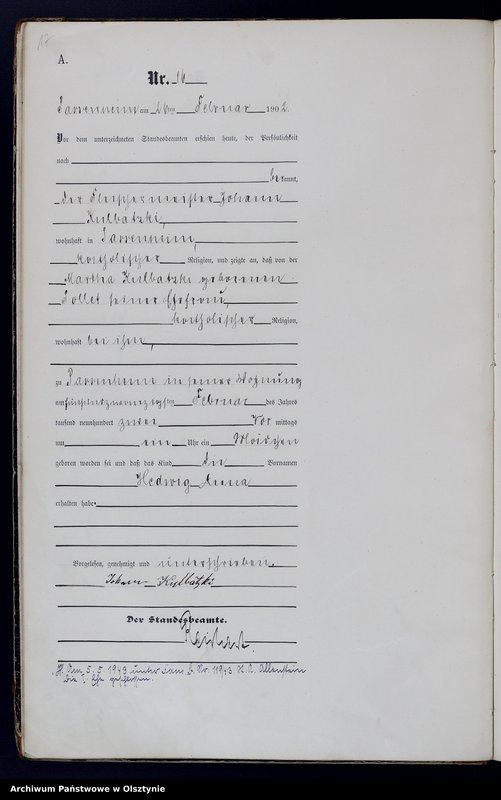 17
A.
Nr. 16
am 26ten Februar 1902.
Vor dem unterzeichneten Standesbeamten erschien heute, der Persönlichkeit
nach
bekannt,
der Fleischermeister Johann
Kulbatzki,
wohnhaft in
katholischer Religion, und zeigte an, daß von der
Martha Kulbatzki geborenen
seiner Ehefrau,
katholischer Religion,
wohnhaft bei ihm,
zu in seiner Wohnung
am fünfundzwanzigsten Februar des Jahres
tausend neunhundert zwei Vor mittags
um ein Uhr ein Mädchen
geboren worden sei und daß das Kind die Vornamen
Hedwig Anna
erhalten habe.
Vorgelesen, genehmigt und unterschrieben.
Johann Kulbatzki
Der Standesbeamte.
Den 5.5.1943 unter Nr. Allenstein
die Ehe geschlossen.
Archiwum Państwowe w Olsztynie